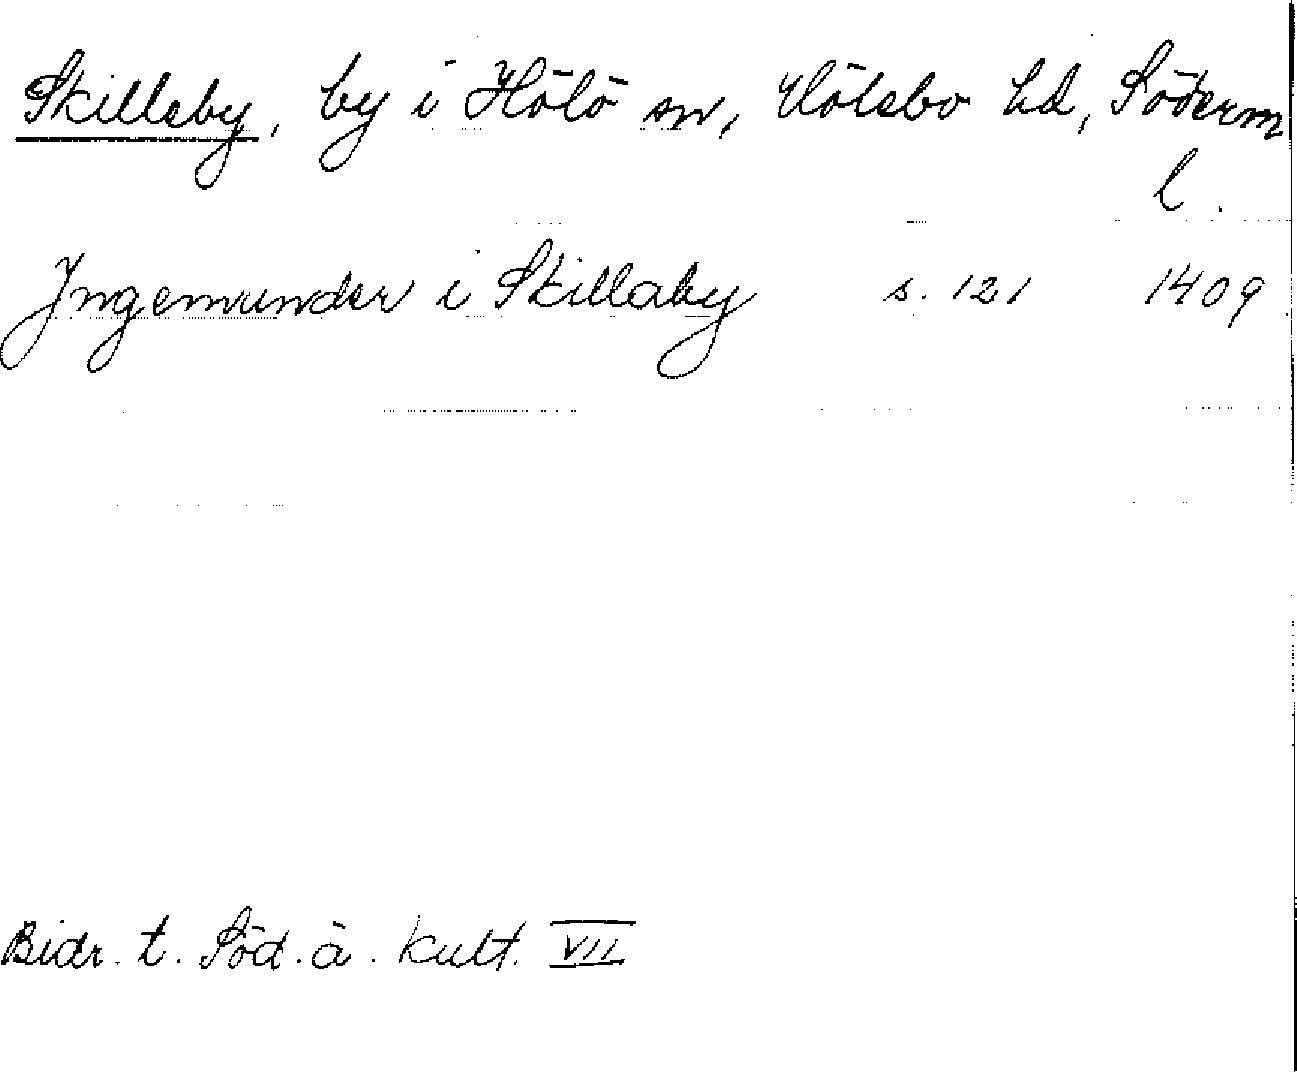 Skilleby, by i Hölö sn, Hölebo hd, Söderm
l.
Ingemunder i Skillaby s. 121 1409
Bidr. t. Söd. ä. kult. VII